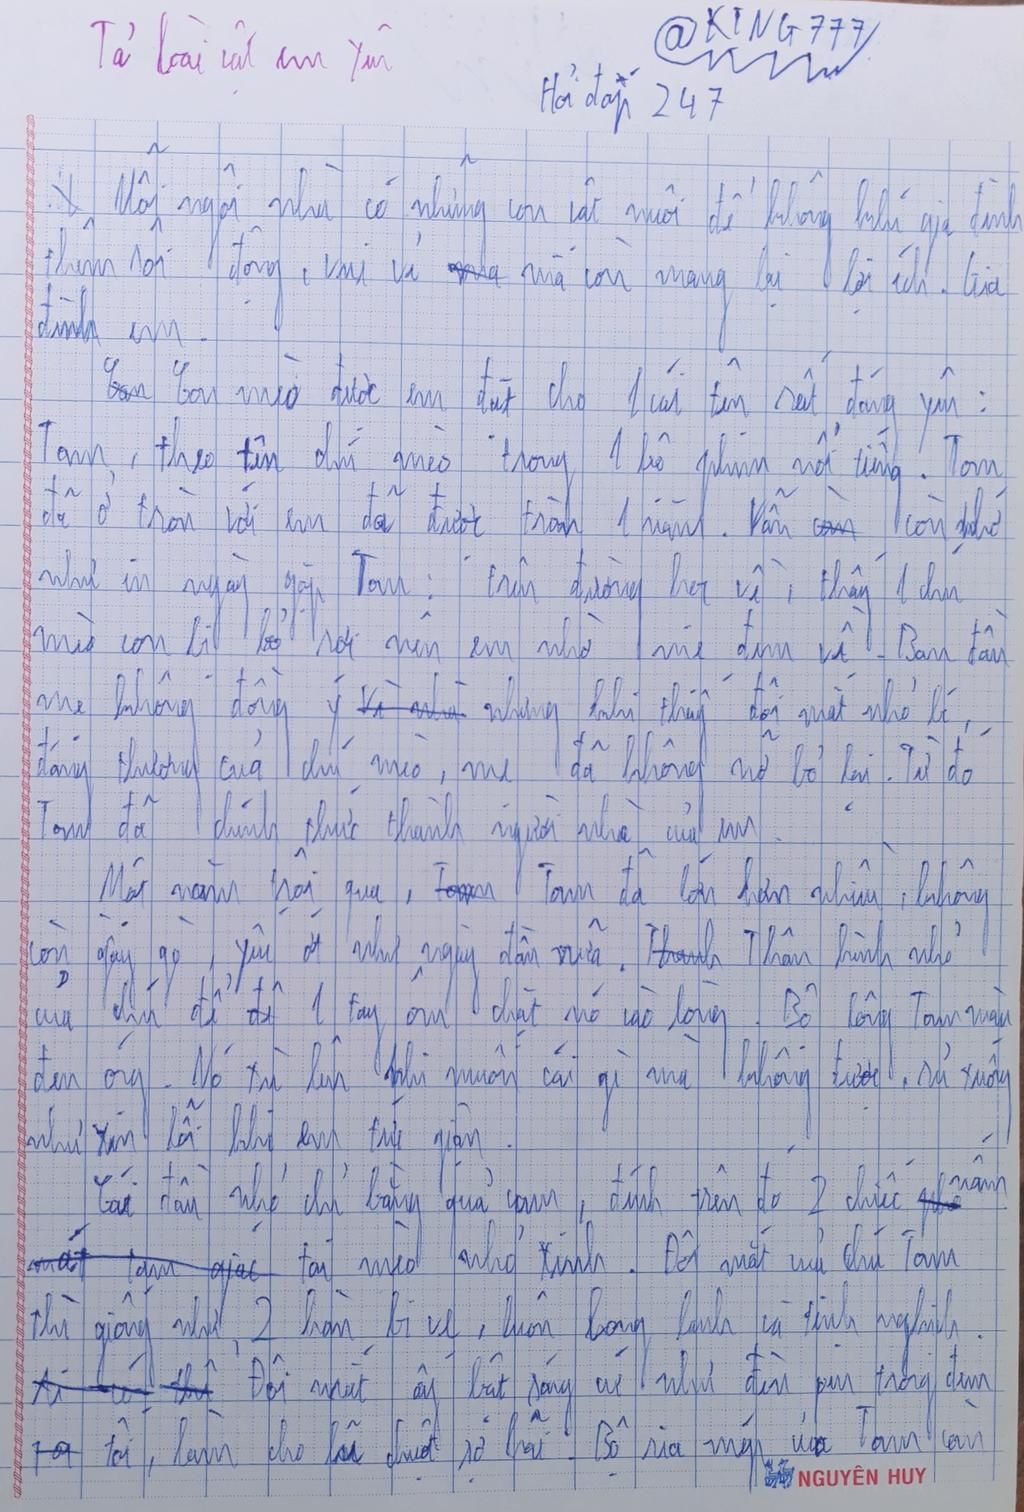 Tả loài vật em yêu
@KING777
Hỏi đáp 247
Mỗi ngôi nhà có những con vật nuôi để không khí gia đình
thêm sôi động, vui vẻ mà còn mang lại lợi ích. Gia
đình em.
Con mèo được em đặt cho 1 cái tên rất đáng yêu:
Tom, theo tên chú mèo trong 1 bộ phim nổi tiếng. Tom
đã ở với em đã được tròn 1 năm. Vẫn còn nhớ
như in ngày gặp Tom: trên đường học về, thấy 1 chú
mèo con bị bỏ rơi nên em nhờ mẹ đem về. Ban đầu
mẹ không đồng ý nhưng khi thấy đôi mắt nhỏ bé,
đáng thương của chú mèo, mẹ đã không nỡ bỏ lại. Từ đó
Tom đã chính thức thành người nhà của em.
Một năm trôi qua, Tom đã lớn hơn nhiều, không
còn gầy gò, yếu ớt như ngày đầu nữa. Thân hình nhỏ
của chú để 1 tay ôm chặt nó vào lòng. Bộ lông Tom màu
đen óng. Nó xù lên khi muốn cái gì mà không được, rủ xuống
như xin lỗi khi em tức giận.
Cái đầu nhỏ chỉ bằng quả cam, đính trên đó 2 chiếc nấm
tai mèo nhỏ xinh. Đôi mắt của chú Tom
thì giống như 2 hòn bi ve, luôn long lanh và tinh nghịch.
Đôi mắt ấy bật sáng như đèn pin trong đêm
tối, làm cho lũ chuột sợ hãi. Bộ ria mép của Tom
NGUYÊN HUY